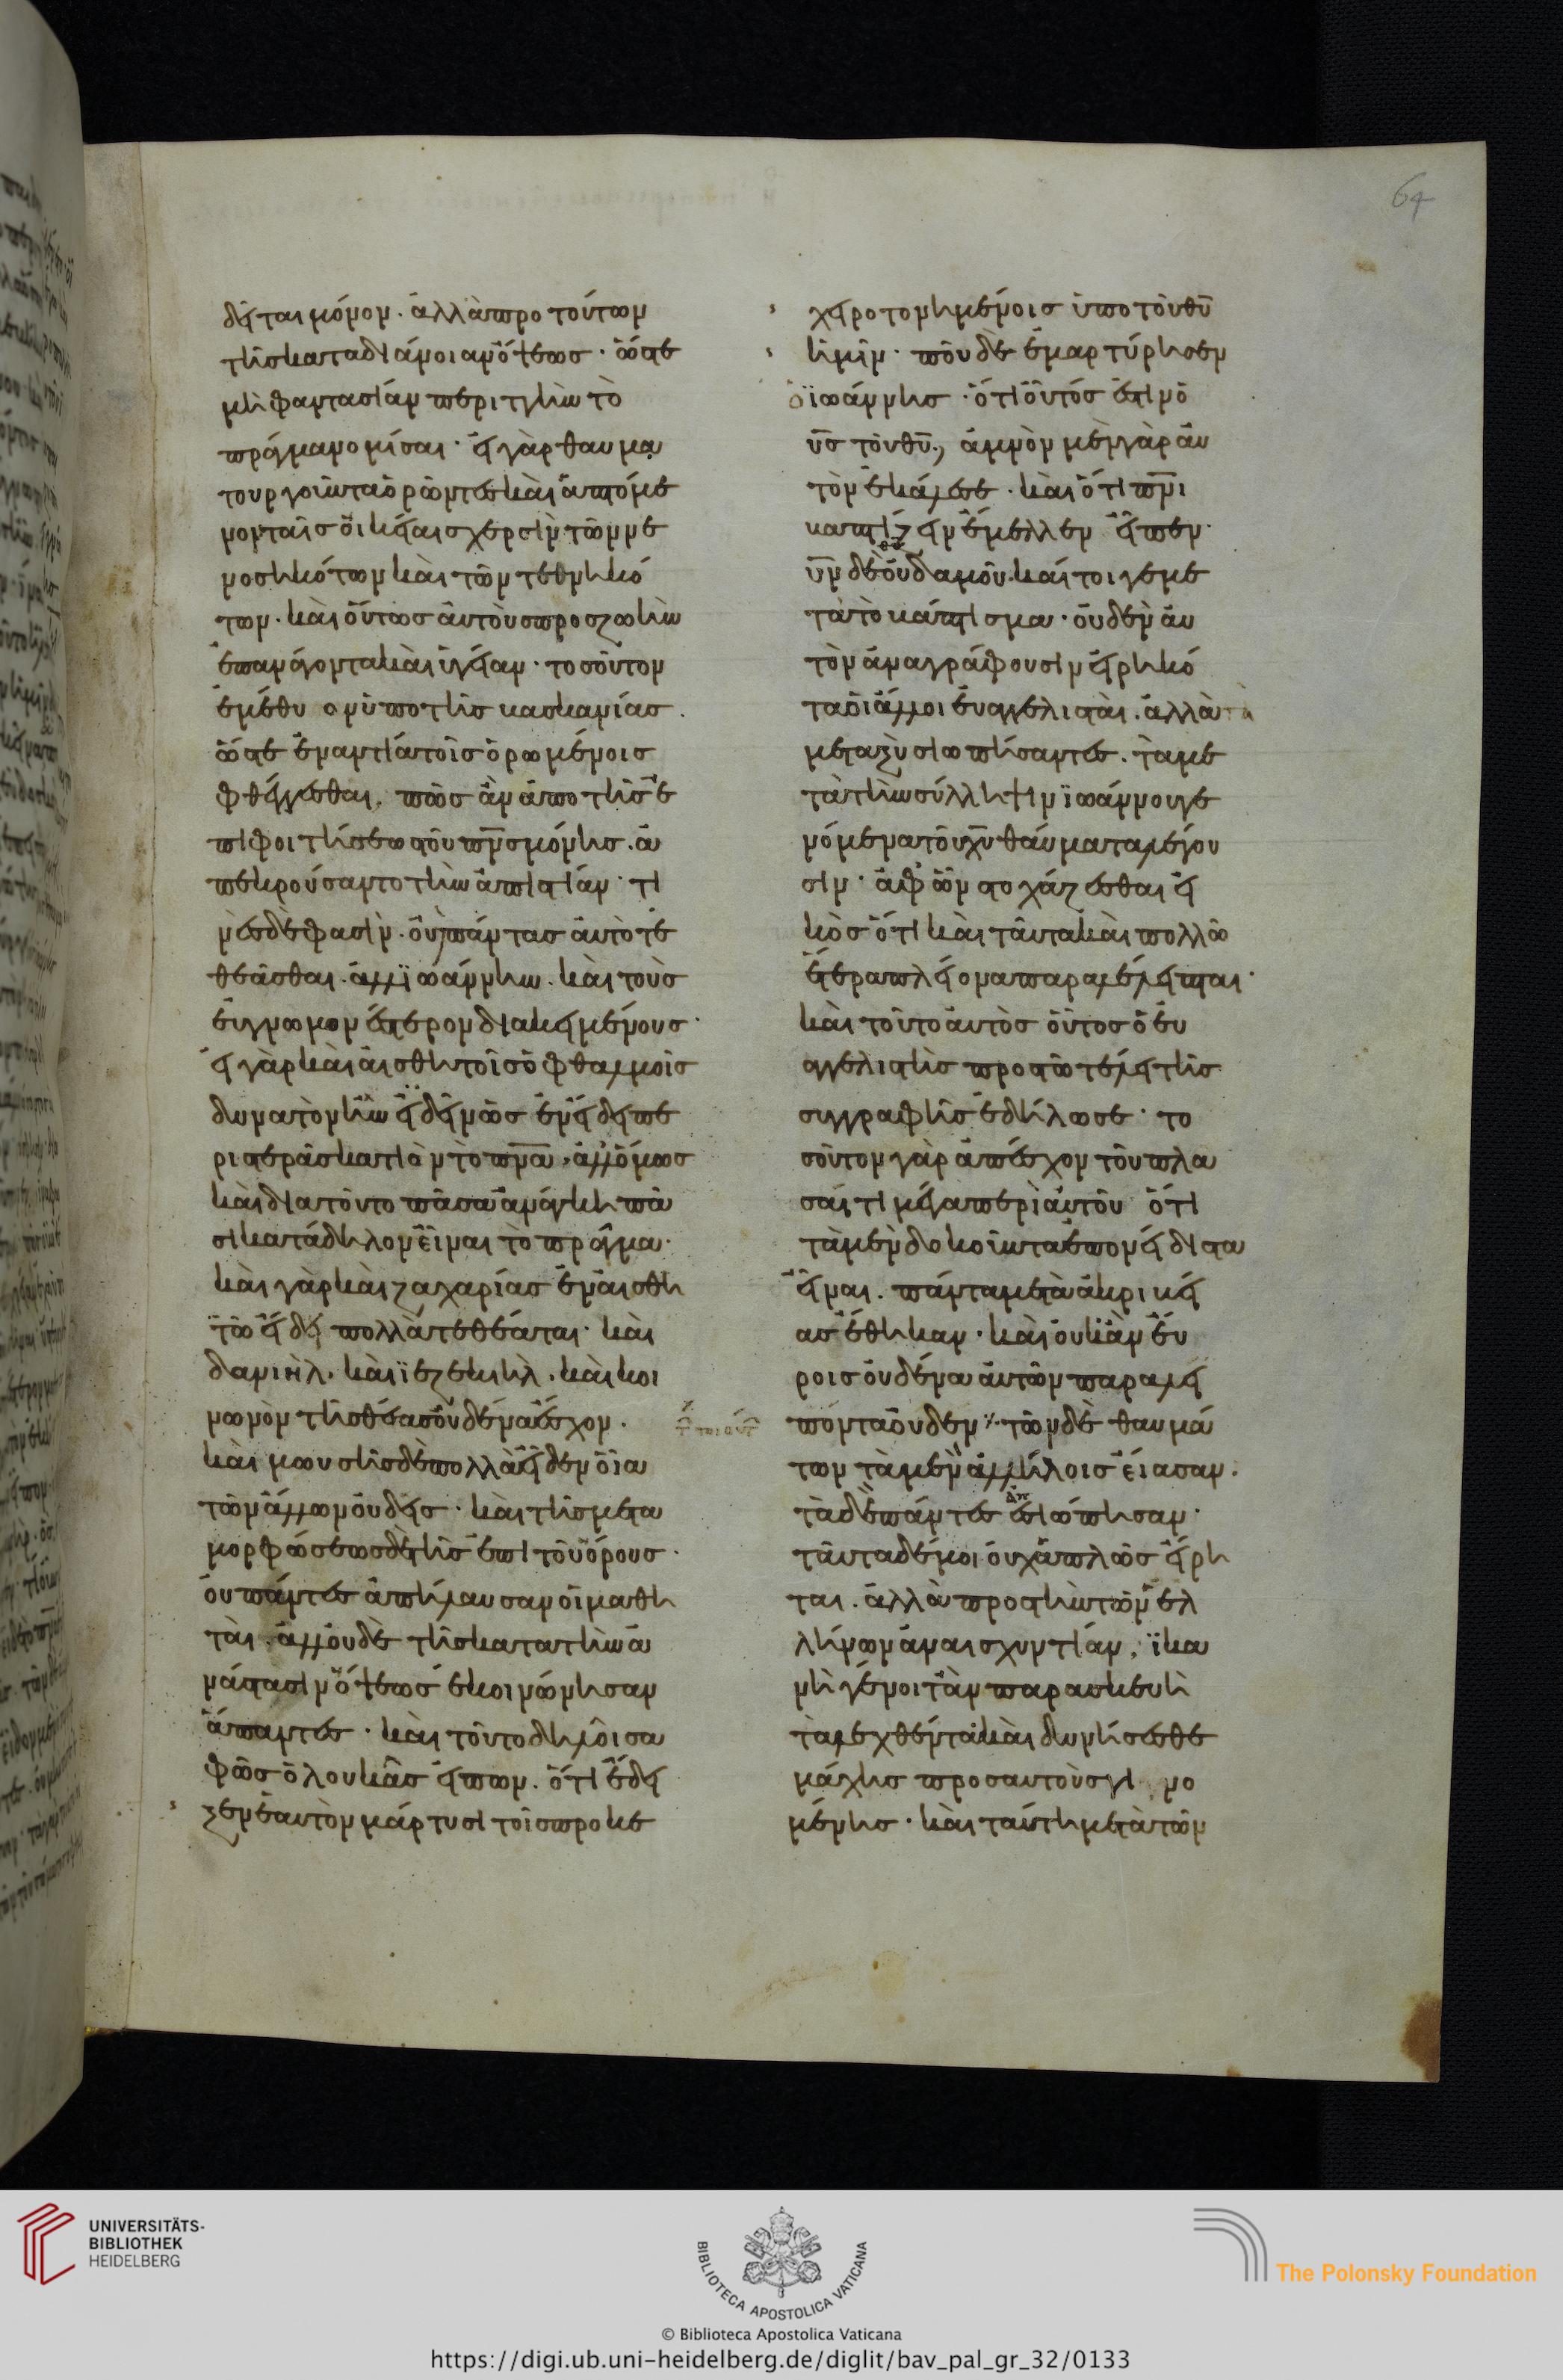 64
δεῖται μόνον. ἀλλὰ προ τούτων
τῆς κατα διάνοιαν ὄψεως. ὥστε
μὴ φαντασίαν περιττὴν τὸ
πρᾶγμα νομίσαι. εἰ γὰρ θαυμα
τουργοῦντα ὁρῶντες καὶ ἁπτόμε
νον ταῖς οἰκείαις χερσὶν τῶν νε
νοσηκότων καὶ τῶν τεθνηκό
των. καὶ οὕτως αὐτοὺς προς ζωὴν
ἐπανάγοντα καὶ ὑγείαν. τοσοῦτον
ἐμέθυον ὑπο τῆς βασκανίας.
ὥστε ἐναντία τοῖς ὁρωμένοις
φθέγγεσθαι, πῶς ἂν ἀπο τῆς ἐ
πιφοιτήσεως τοῦ πνς μόνης. ἀ
πεκρούσαντο τὴν ἀπιστίαν. τι
νὲς δέ φασὶν. οὐ πάντας αὐτὸ τε
θεᾶσθαι. ἀλλ ϊωάννην. καὶ τοὺς
εὐγνωμονέστερον διακειμένους.
εἰ γὰρ καὶ αἰσθητοῖς ὀφθαλμοῖς
δυνατὸν ἦν εἰδέναι ὡς ἐν εἴδει πε
ριστερᾶς κατιὸν τὸ πνα, ἀλλ ὅμως
καὶ δια τοῦτο πᾶσα ἀνάγκη πᾶ
σι κατάδηλον εἶναι τὸ πρᾶγμα.
καὶ γὰρ καὶ ζαχαρίας ἐν αἰσθη
τῶ εἴδει πολλὰ τεθέαται. καὶ
δανιὴλ. καὶ ϊεζεκιὴλ. καὶ κοι
νωνὸν τῆς θέας οὐδένα ἔσχον.
καὶ μωυσῆς δὲ πολλὰ εἶδεν οἷα
τῶν ἄλλων οὐδείς. καὶ τῆς μετα
μορφώσεως δὲ τῆς ἐπι τοῦ ὄρους.
οὐ πάντες ἀπήλαυσαν οἱ μαθη
ταὶ. ἀλλ οὐδὲ τῆς κατα τὴν ἀ
νάστασιν ὄψεως ἐκοινώνησαν
ἅπαντες. καὶ τοῦτο δηλοῖ σα
φῶς ὁ λουκᾶς εἰπων. ὅτι ἔδει
ξεν ἑαυτὸν μάρτυσι τοῖς προκε
χειροτονημένοις ὑπο τοῦ θυ
ἡμῖν. ποῦ δὲ ἐμαρτύρησεν
ὁ ϊωάννης. ὅτι οὗτός ἐστιν ὁ
υς τοῦ θυ, ἀμνὸν μὲν γὰρ αὐ
τὸν ἐκάλεσε. καὶ ὅτι πνι
βαπτίζειν ἔμελλεν εἶπεν.
υν δὲ θυ οὐδαμοῦ. καί τοι γε με
τὰ τὸ βάπτισμα. οὐδὲν αὐ
τὸν ἀναγράφουσιν εἰρηκό
τα οἱ ἄλλοι εὐαγγελισταὶ. ἀλλὰ τὰ
μεταξὺ σιωπήσαντες. τὰ με
τὰ τὴν σύλληψιν ϊωάννου γε
νόμενα τοῦ χυ θαύματα λέγου
σιν. ἀφ ὧν στοχάζεσθαι εἰ
κὸς ὅτι καὶ ταῦτα καὶ πολλῶ
ἕτερα πλείονα παραλέλειπται.
καὶ τοῦτο αὐτὸς οὗτος ὁ εὐ
αγγελιστὴς προς τῶ τέλει τῆς
συγγραφῆς ἐδήλωσε. το
σοῦτον γὰρ ἀπέσχον τοῦ πλά
σαι τι μέγα περὶ αὐτοῦ ὅτι
τὰ μὲν δοκοῦντα ἐπονείδιστα
εἶναι. πάντα μετὰ ἀκριβεί
ας ἔθηκαν. καὶ οὐκ ἂν εὕ
ροις οὐδένα αὐτῶν παραλει
πόντα οὐδεν ⁒ τῶν δὲ θαυμά
των τὰ μὲν ἀλλήλοις εἴασαν.
τὰ δὲ πάντες ἀπεσιώπησαν.
ταῦτα δέ μοι οὐχ ἁπλῶς εἴρη
ται. ἀλλὰ προς τὴν τῶν ἑλ
λήνων ἀναισχυντίαν, ϊκα
νὴ γένοιτ ἂν παρασκευὴ
τὰ λεχθέντα καὶ δυνήσεσθε
μάχης προς αὐτοὺς γινο
μένης. καὶ ταύτη μετὰ τῶν
UNIVERSITÄTS-
BIBLIOTHEK
HEIDELBERG
BIBLIOTECA APOSTOLICA VATICANA
The Polonsky Foundation
© Biblioteca Apostolica Vaticana
https://digi.ub.uni-heidelberg.de/diglit/bav_pal_gr_32/0133